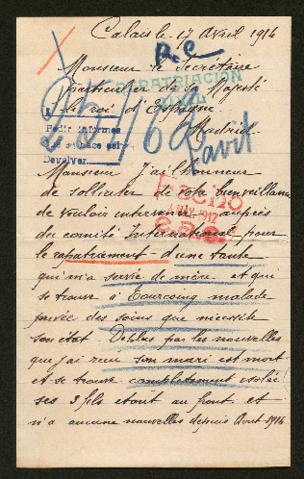 Calais le 17 Avril 1916
Re
Monsieur le Secrétaire
particulier de sa Majesté
REPATRIACIÓN
le roi d'Espagne
Madrid
Pedir informes
Devolver
Monsieur J'ai l'honneur
de solliciter de votre bienveillance
de vouloir intervenir auprès
HECHO
1917
du comité International pour
le rapatriement d'une tante
qui m'a servie de mère et qui
se trouve à Tourcoing malade
privée des soins que nécessite
son état
que j'ai reçu son mari est mort
et se trouve complètement isolée
ses 3 fils étant au front et
n'a aucune nouvelles depuis Août 1914